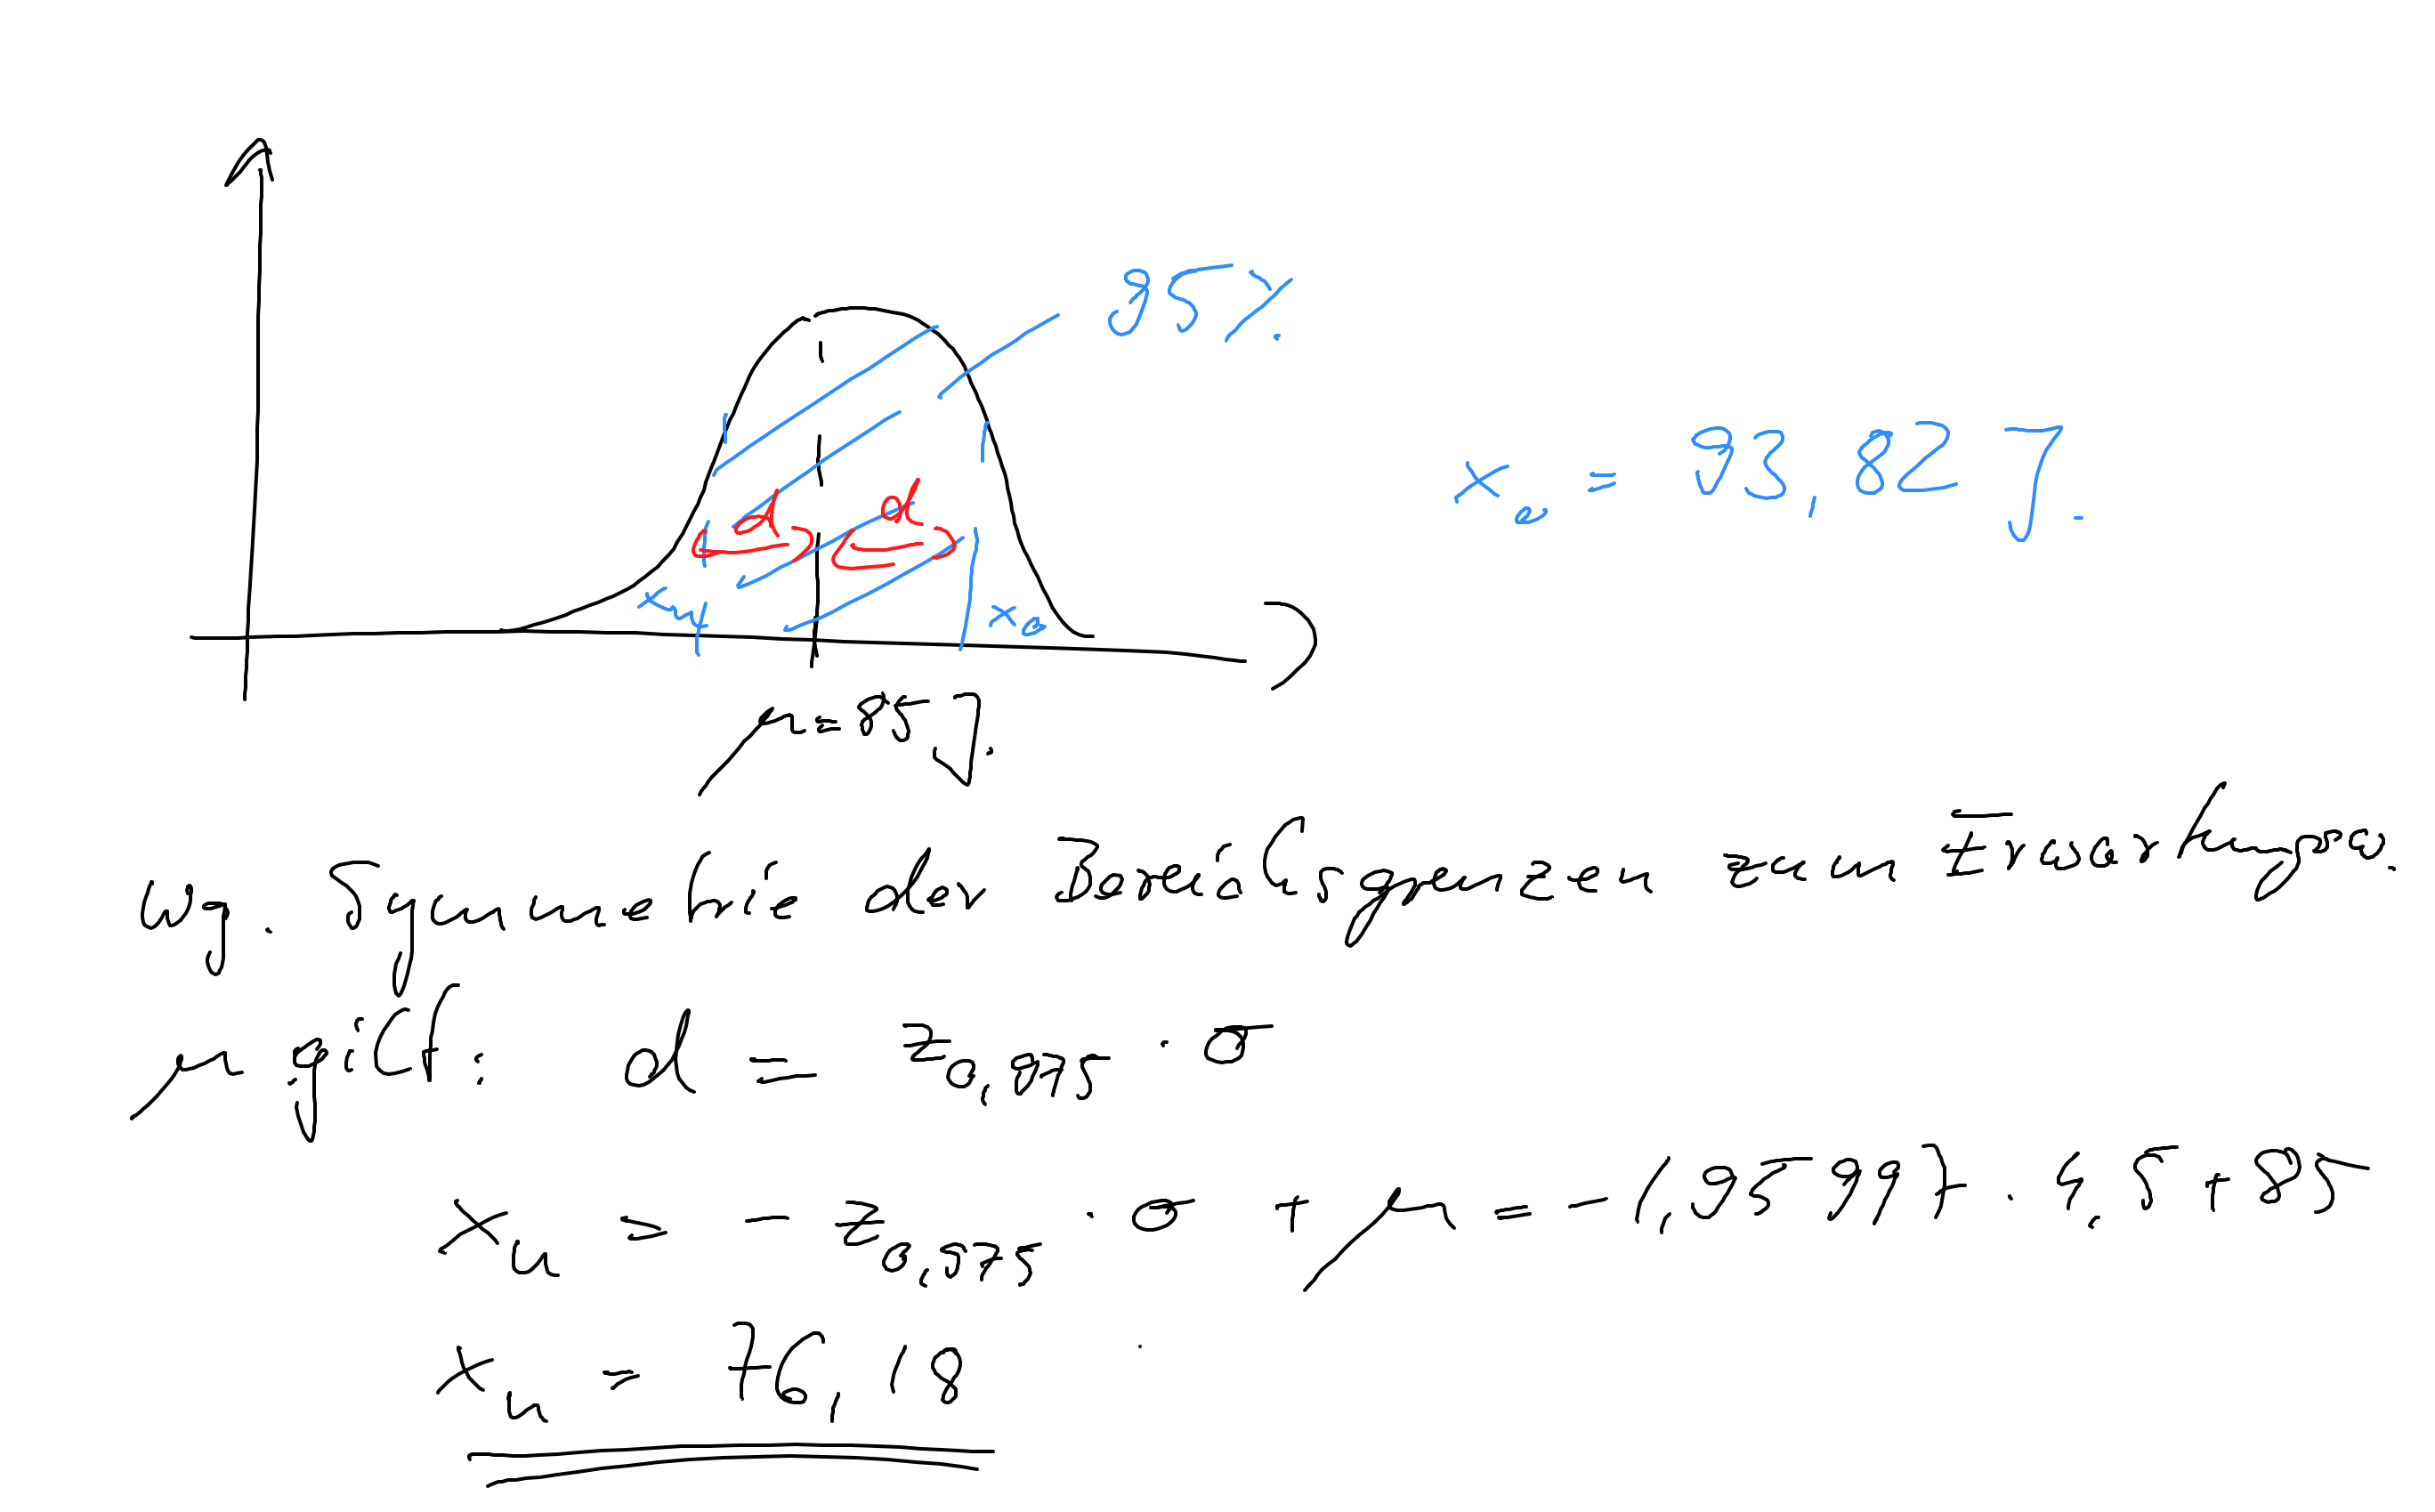 95%
x_o = 93,82 J.
d d
x_u x_o
μ=85 J.
wg. Symmetrie der Bereichsgrenzen zum Erwartungsw.
μ gilt: d = z_0,975 · σ
x_u = -z_0,975 · σ + μ = -1,95997 · 4,5 + 85
x_u = 76,18